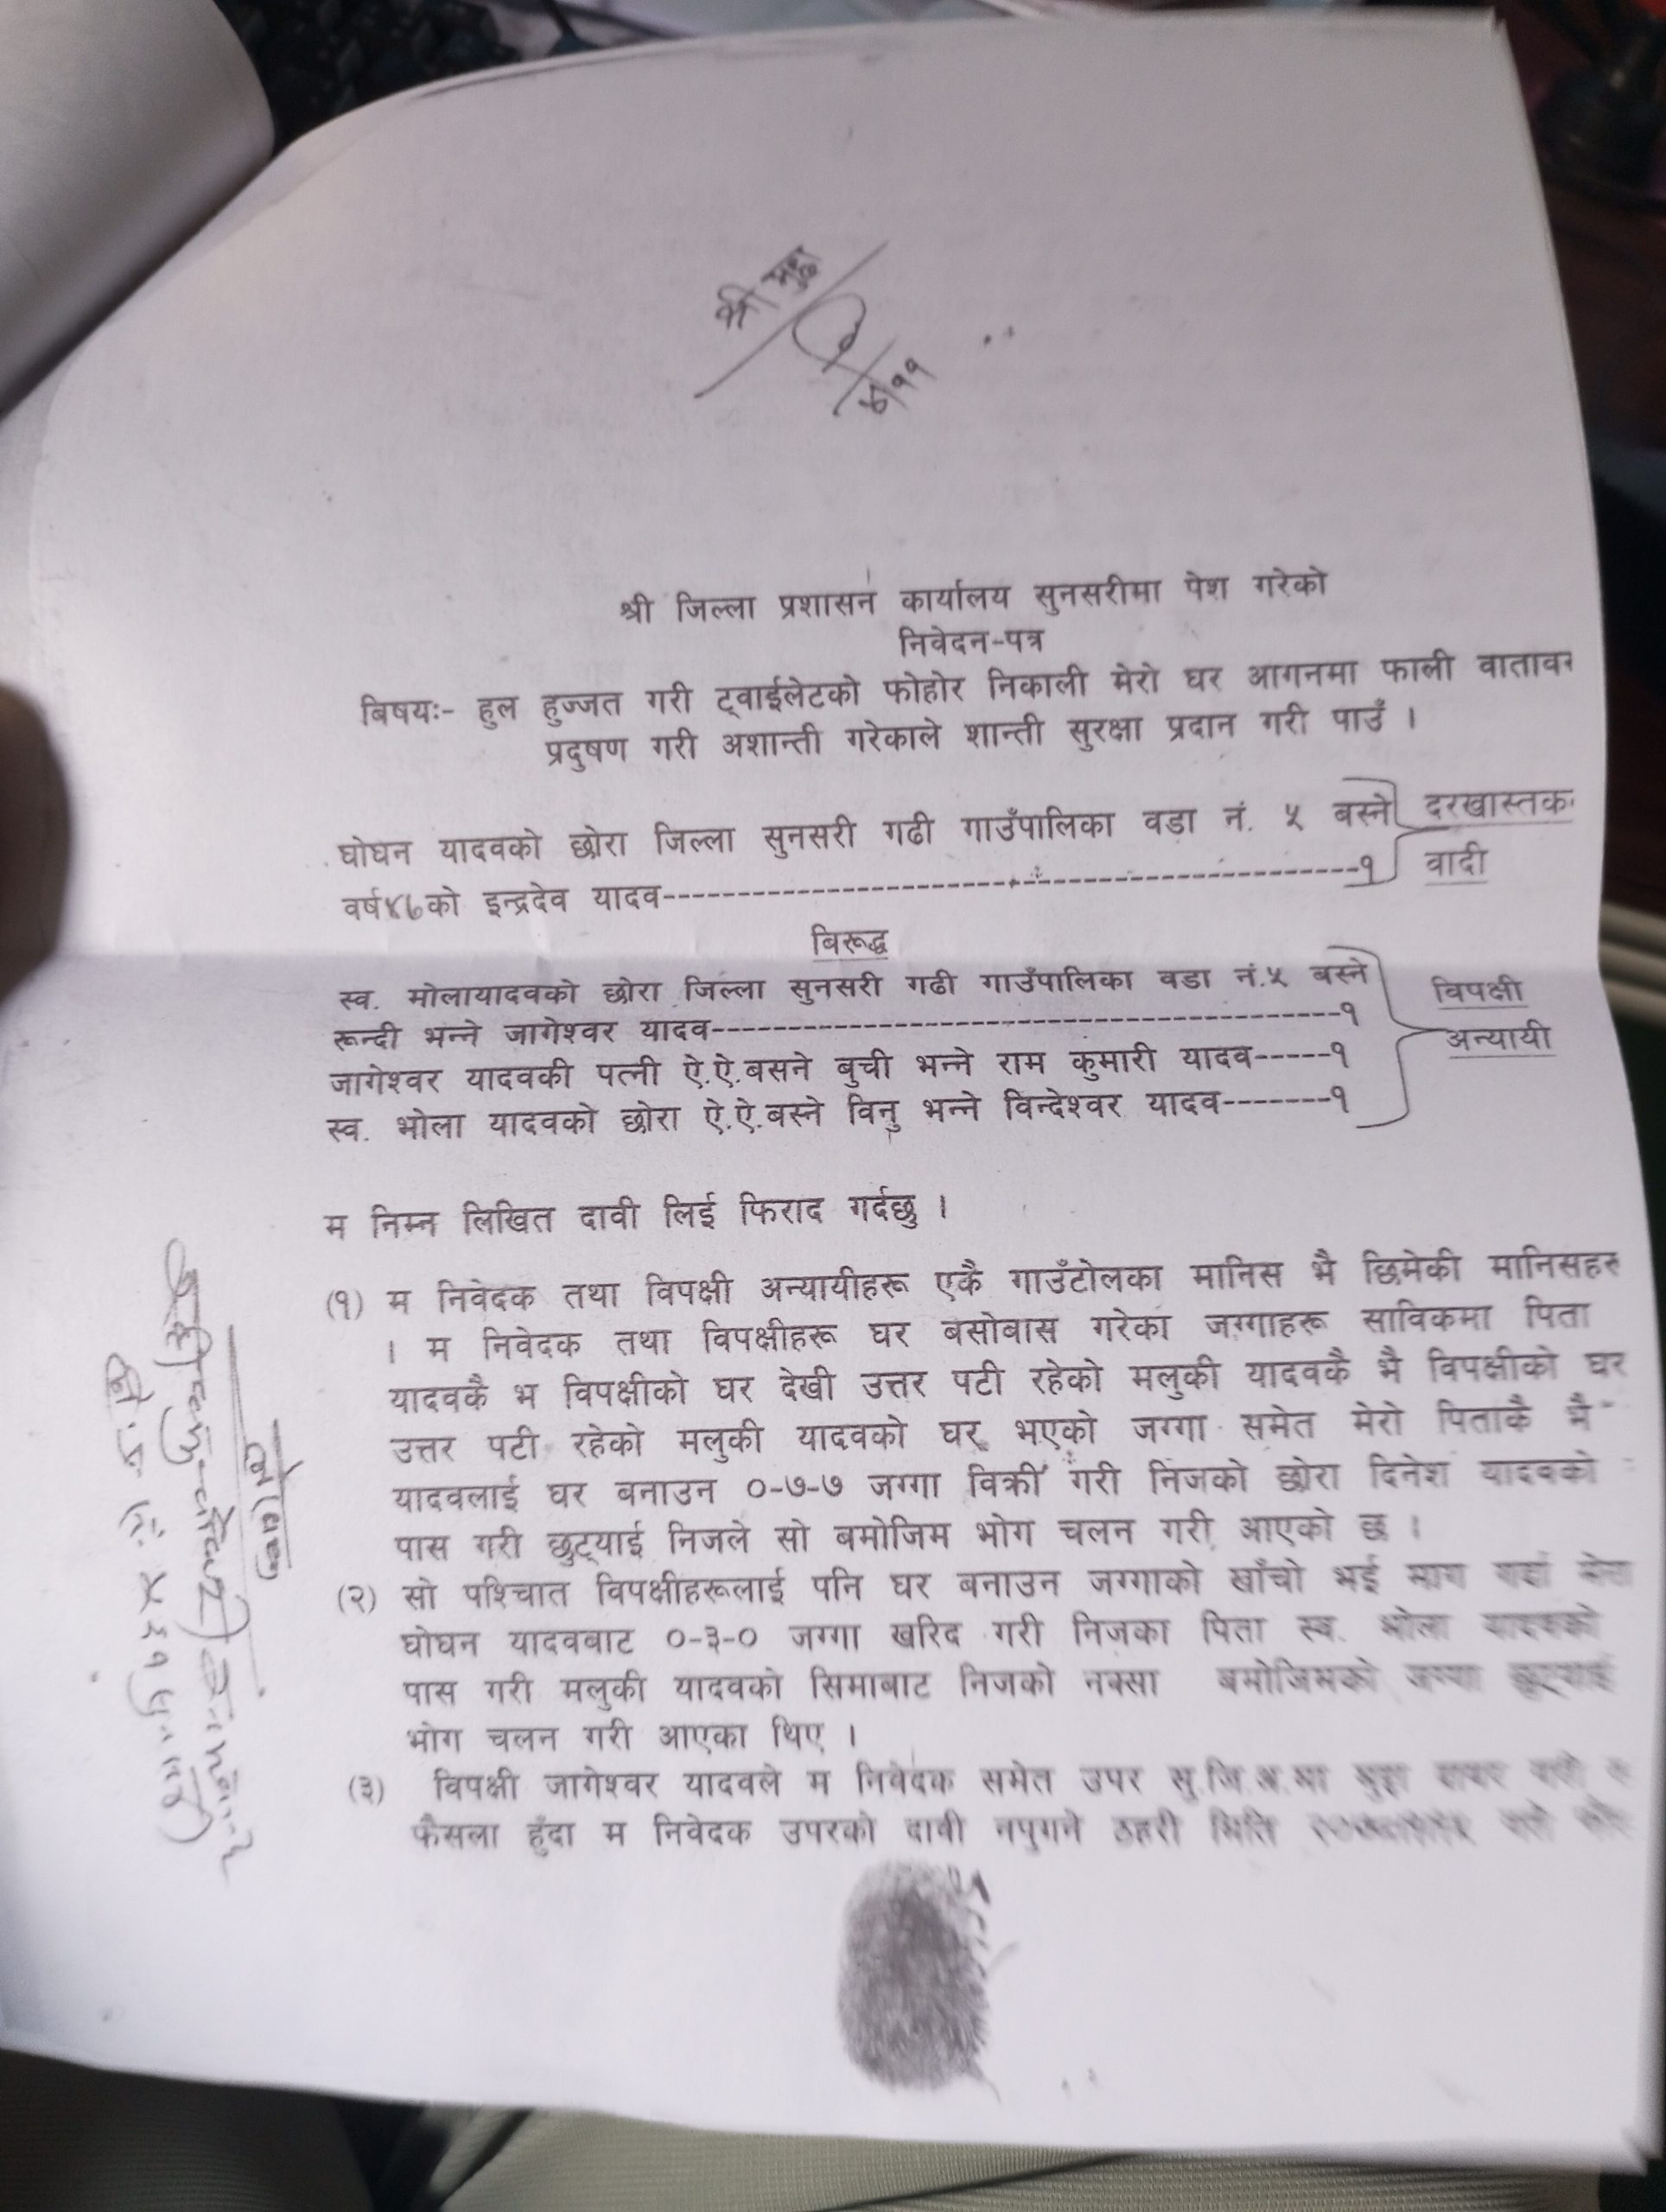 श्री मुद्दा
श्री जिल्ला प्रशासन कार्यालय सुनसरीमा पेश गरेको
निवेदन-पत्र
बिषयः- हुल हुज्जत गरी ट्वाईलेटको फोहोर निकाली मेरो घर आगनमा फाली वातावर
प्रदुषण गरी अशान्ती गरेकाले शान्ती सुरक्षा प्रदान गरी पाउँ ।
घोघन यादवको छोरा जिल्ला सुनसरी गढी गाउँपालिका वडा नं. ५ बस्ने दरखास्तक
वर्ष४६को इन्द्रदेव यादव--------------------------------------------१ वादी
बिरूद्ध
स्व. मोलायादवको छोरा जिल्ला सुनसरी गढी गाउँपालिका वडा नं.५ बस्ने विपक्षी
रून्दी भन्ने जागेश्वर यादव----------------------------------------१ अन्यायी
जागेश्वर यादवकी पत्नी ऐ.ऐ.बसने बुची भन्ने राम कुमारी यादव-----१
स्व. भोला यादवको छोरा ऐ.ऐ.बस्ने विनु भन्ने विन्देश्वर यादव-------१
म निम्न लिखित दावी लिई फिराद गर्दछु ।
(१) म निवेदक तथा विपक्षी अन्यायीहरू एकै गाउँटोलका मानिस भै छिमेकी मानिसहरु
। म निवेदक तथा विपक्षीहरू घर बसोबास गरेका जग्गाहरू साविकमा पिता
यादवकै भ विपक्षीको घर देखी उत्तर पटी रहेको मलुकी यादवकै भै विपक्षीको घर
उत्तर पटी रहेको मलुकी यादवको घर भएको जग्गा समेत मेरो पिताकै भै
यादवलाई घर बनाउन ०-७-७ जग्गा विक्री गरी निजको छोरा दिनेश यादवको
पास गरी छुट्याई निजले सो बमोजिम भोग चलन गरी आएको छ ।
(२) सो पश्चिात विपक्षीहरूलाई पनि घर बनाउन जग्गाको खाँचो भई माग
घोघन यादवबाट ०-३-० जग्गा खरिद गरी निजका पिता स्व. भोला यादवको
पास गरी मलुकी यादवको सिमाबाट निजको नक्सा बमोजिमको जग्गा छुट्याई
भोग चलन गरी आएका थिए ।
(३) विपक्षी जागेश्वर यादवले म निवेदक समेत उपर सु.जि.अ.मा मुद्दा दायर
फैसला हुँदा म निवेदक उपरको दावी नपुगने ठहरी मिति